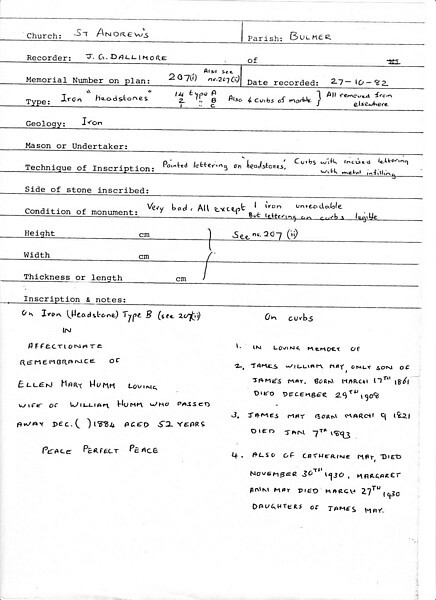 Church: ST ANDREW'S Parish: BULMER
Recorder: J. G. DALLIMORE of
Memorial Number on plan: 207(i) Also see no. 207(ii) Date recorded: 27-10-82
Type: Iron "Headstones" 14 type A Also 4 curbs of marble } All removed from
2 " B elsewhere
1 " C
Geology: Iron
Mason or Undertaker:
Technique of Inscription: Painted lettering on "headstones". Curbs with incised lettering
with metal infilling
Side of stone inscribed:
Condition of monument: Very bad. All except 1 iron unreadable
But lettering on curbs legible
Height cm
Width cm } See no. 207 (ii)
Thickness or length cm
Inscription & notes:
On Iron (Headstone) Type B (see 207(ii))
IN
AFFECTIONATE
REMEMBRANCE OF
ELLEN MARY HUMM LOVING
WIFE OF WILLIAM HUMM WHO PASSED
AWAY DEC. ( ) 1884 AGED 52 YEARS
PEACE PERFECT PEACE
On curbs
1. IN LOVING MEMORY OF
2. JAMES WILLIAM MAY, ONLY SON OF
JAMES MAY. BORN MARCH 17TH 1861
DIED DECEMBER 29TH 1908
3. JAMES MAY BORN MARCH 9 1821
DIED JAN 7TH 1893
4. ALSO OF CATHERINE MAY, DIED
NOVEMBER 30TH 1930, MARGARET
ANN MAY DIED MARCH 27TH 1930
DAUGHTERS OF JAMES MAY.